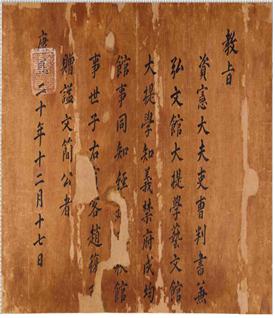 教旨
資憲大夫吏曹判書兼
弘文館大提學藝文館
大提學知義禁府成均
館事同知經 館
事世子右 客趙
贈謚文簡公者
二十年十二月十七日